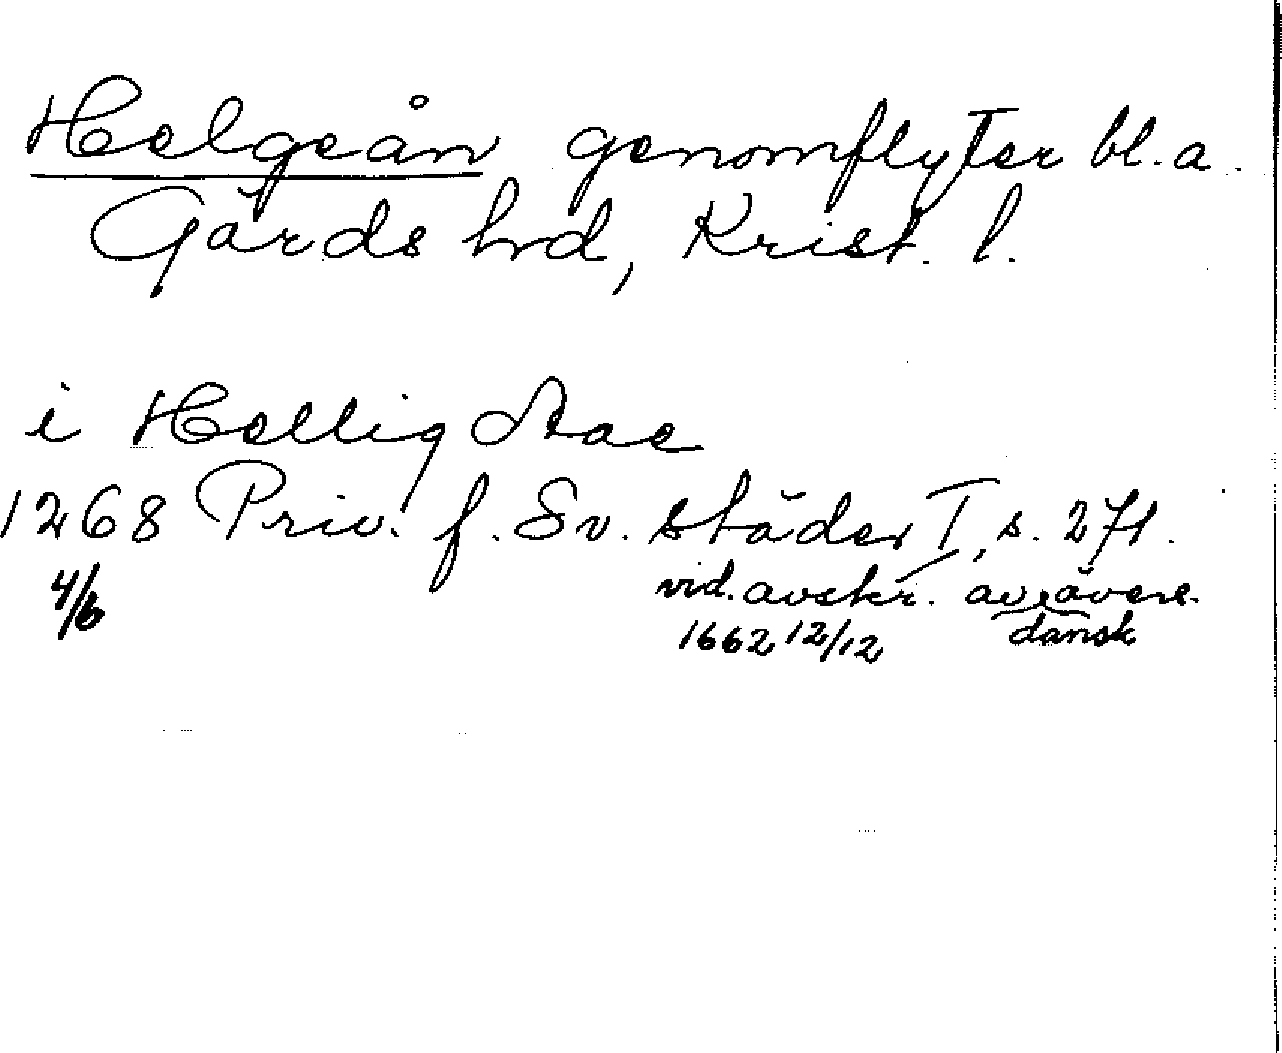 Helgeån genomflyter bl. a.
Gärds hrd, Krist. l.
i Hellig Aae
1268 Priv. f. Sv. städer I, s. 271.
4/6 vid. avskr. av övers.
1662 12/12 dansk